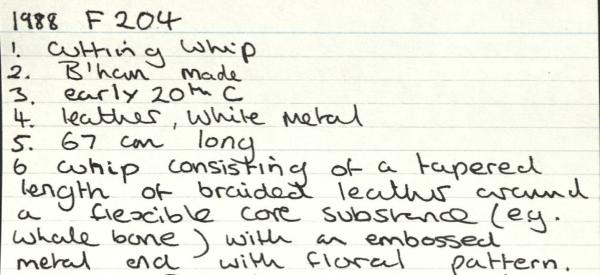 1988 F 204
1. cutting whip
2. B'ham made
3. early 20th C
4. leather, white metal
5. 67 cm long
6 whip consisting of a tapered
length of braided leather around
a flexible core substance (eg.
whale bone) with an embossed
metal end with floral pattern.